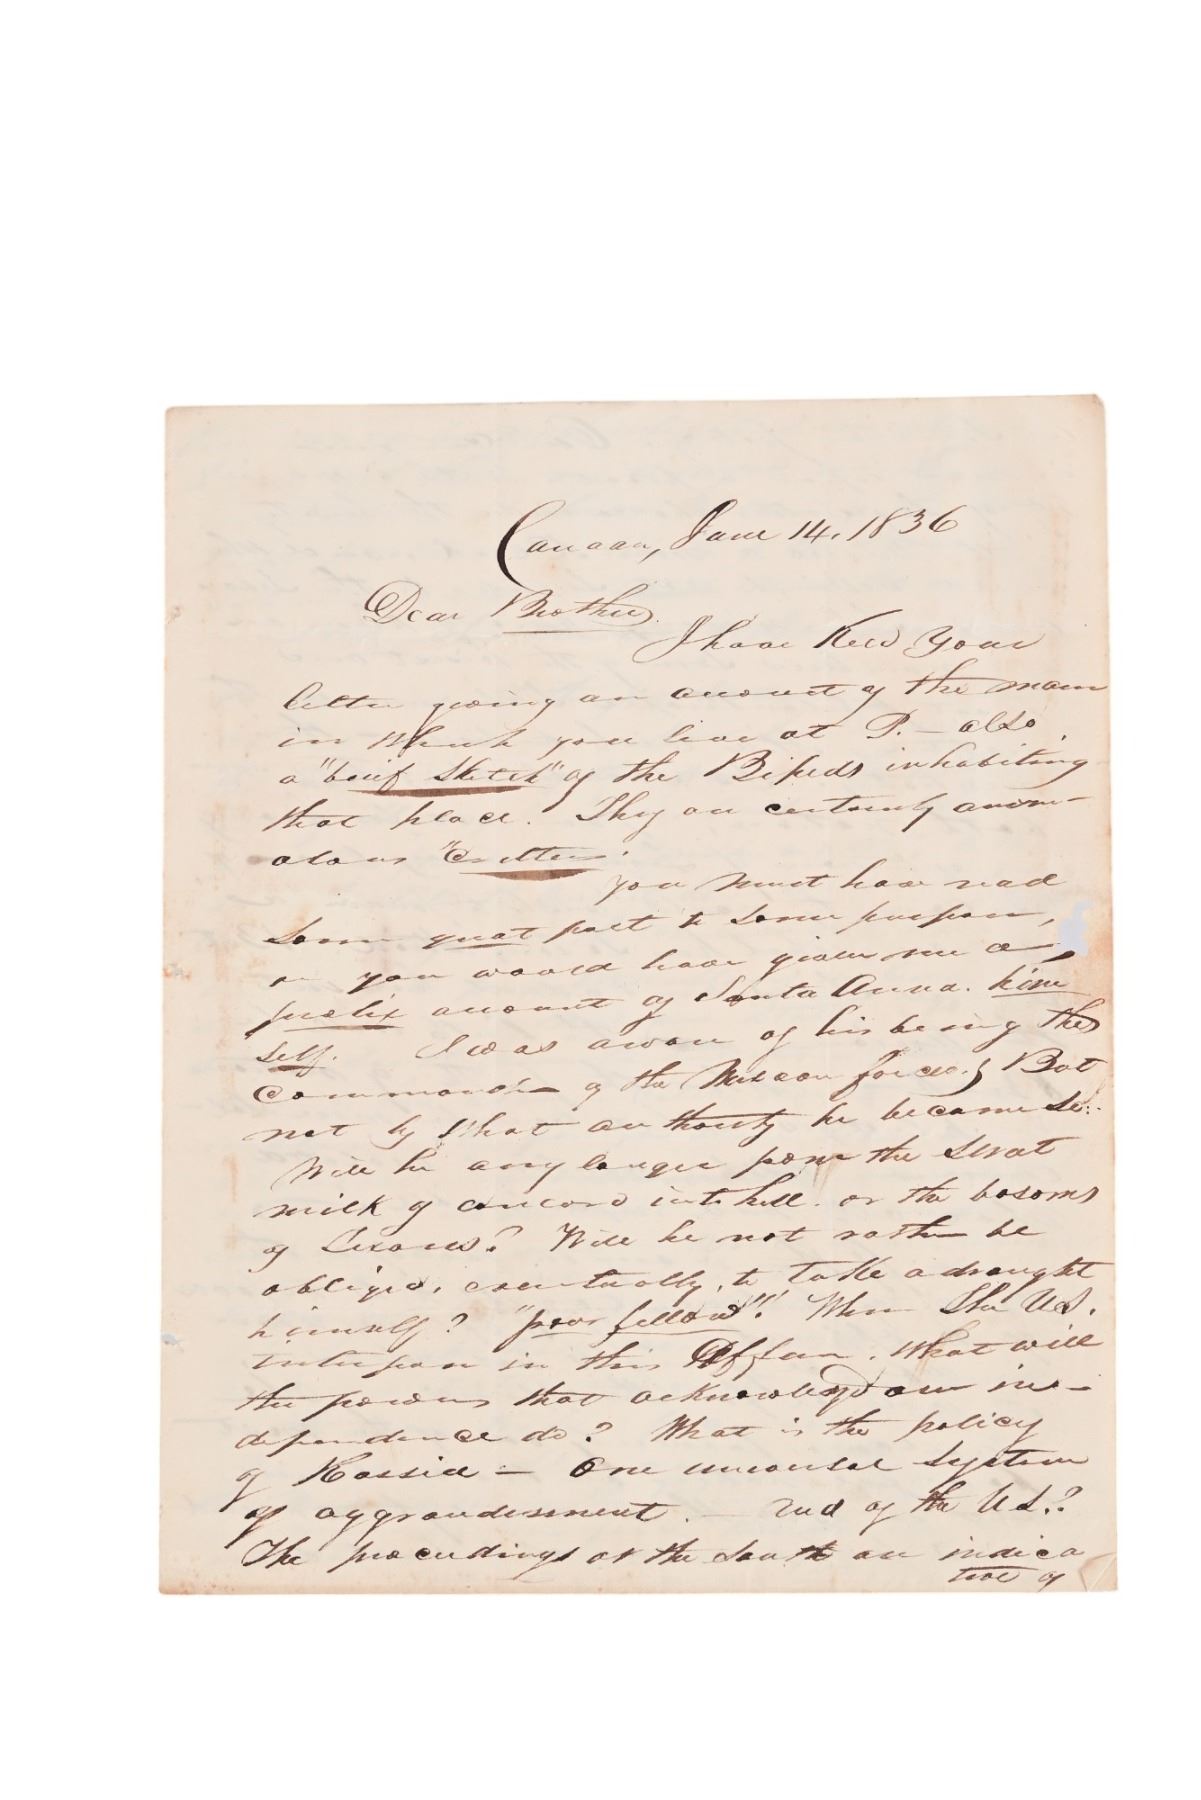 Canaan, June 14, 1836
Dear Brother.
I have Recd Your
letter giving an account of the man
in which you live at P. – also
a "brief Sketch" of the Bipeds inhabiting
that place. They are certainly anom-
alous "Critters".
You must have read
Some great poet to some purpose,
or you would have given me a
prolix account of Santa Anna. him
self. I was aware of his being the
Commander of the Mexican forces; But
not by what authority he became so.
Will he any longer pour the sweat
milk of concord into hell. or the bosoms
of Texans? Will he not rather be
obliged, eventually, to take a draught
himself? "poor fellow"! When the U.S.
interpose in this Affair. What will
the powers that acknowledgd our in-
dependence do? What is the policy
of Russia – One universal System
of aggrandisement. – and of the U.S.?
The proceedings at the South are indica
tive of